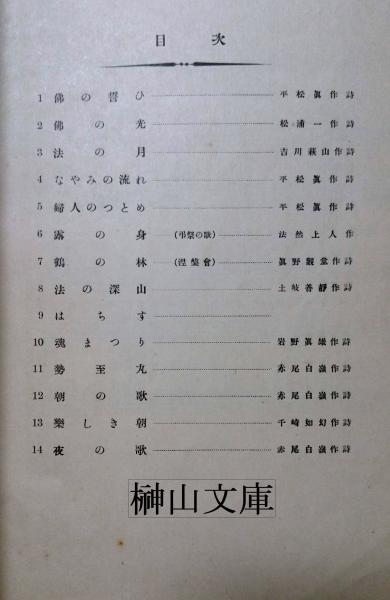 目次
1 佛の誓ひ 平松眞作詩
2 佛の光 松浦一作詩
3 法の月 吉川萩山作詩
4 なやみの流れ 平松眞作詩
5 婦人のつとめ 平松眞作詩
6 露の身 (弔祭の歌) 法然上人作
7 鶴の林 (涅槃會) 眞野觀堂作詩
8 法の深山 土岐善靜作詩
9 はちす
10 魂まつり 岩野眞雄作詩
11 勢至丸 赤尾白嶺作詩
12 朝の歌 赤尾白嶺作詩
13 樂しき朝 千崎如幻作詩
14 夜の歌 赤尾白嶺作詩
榊山文庫